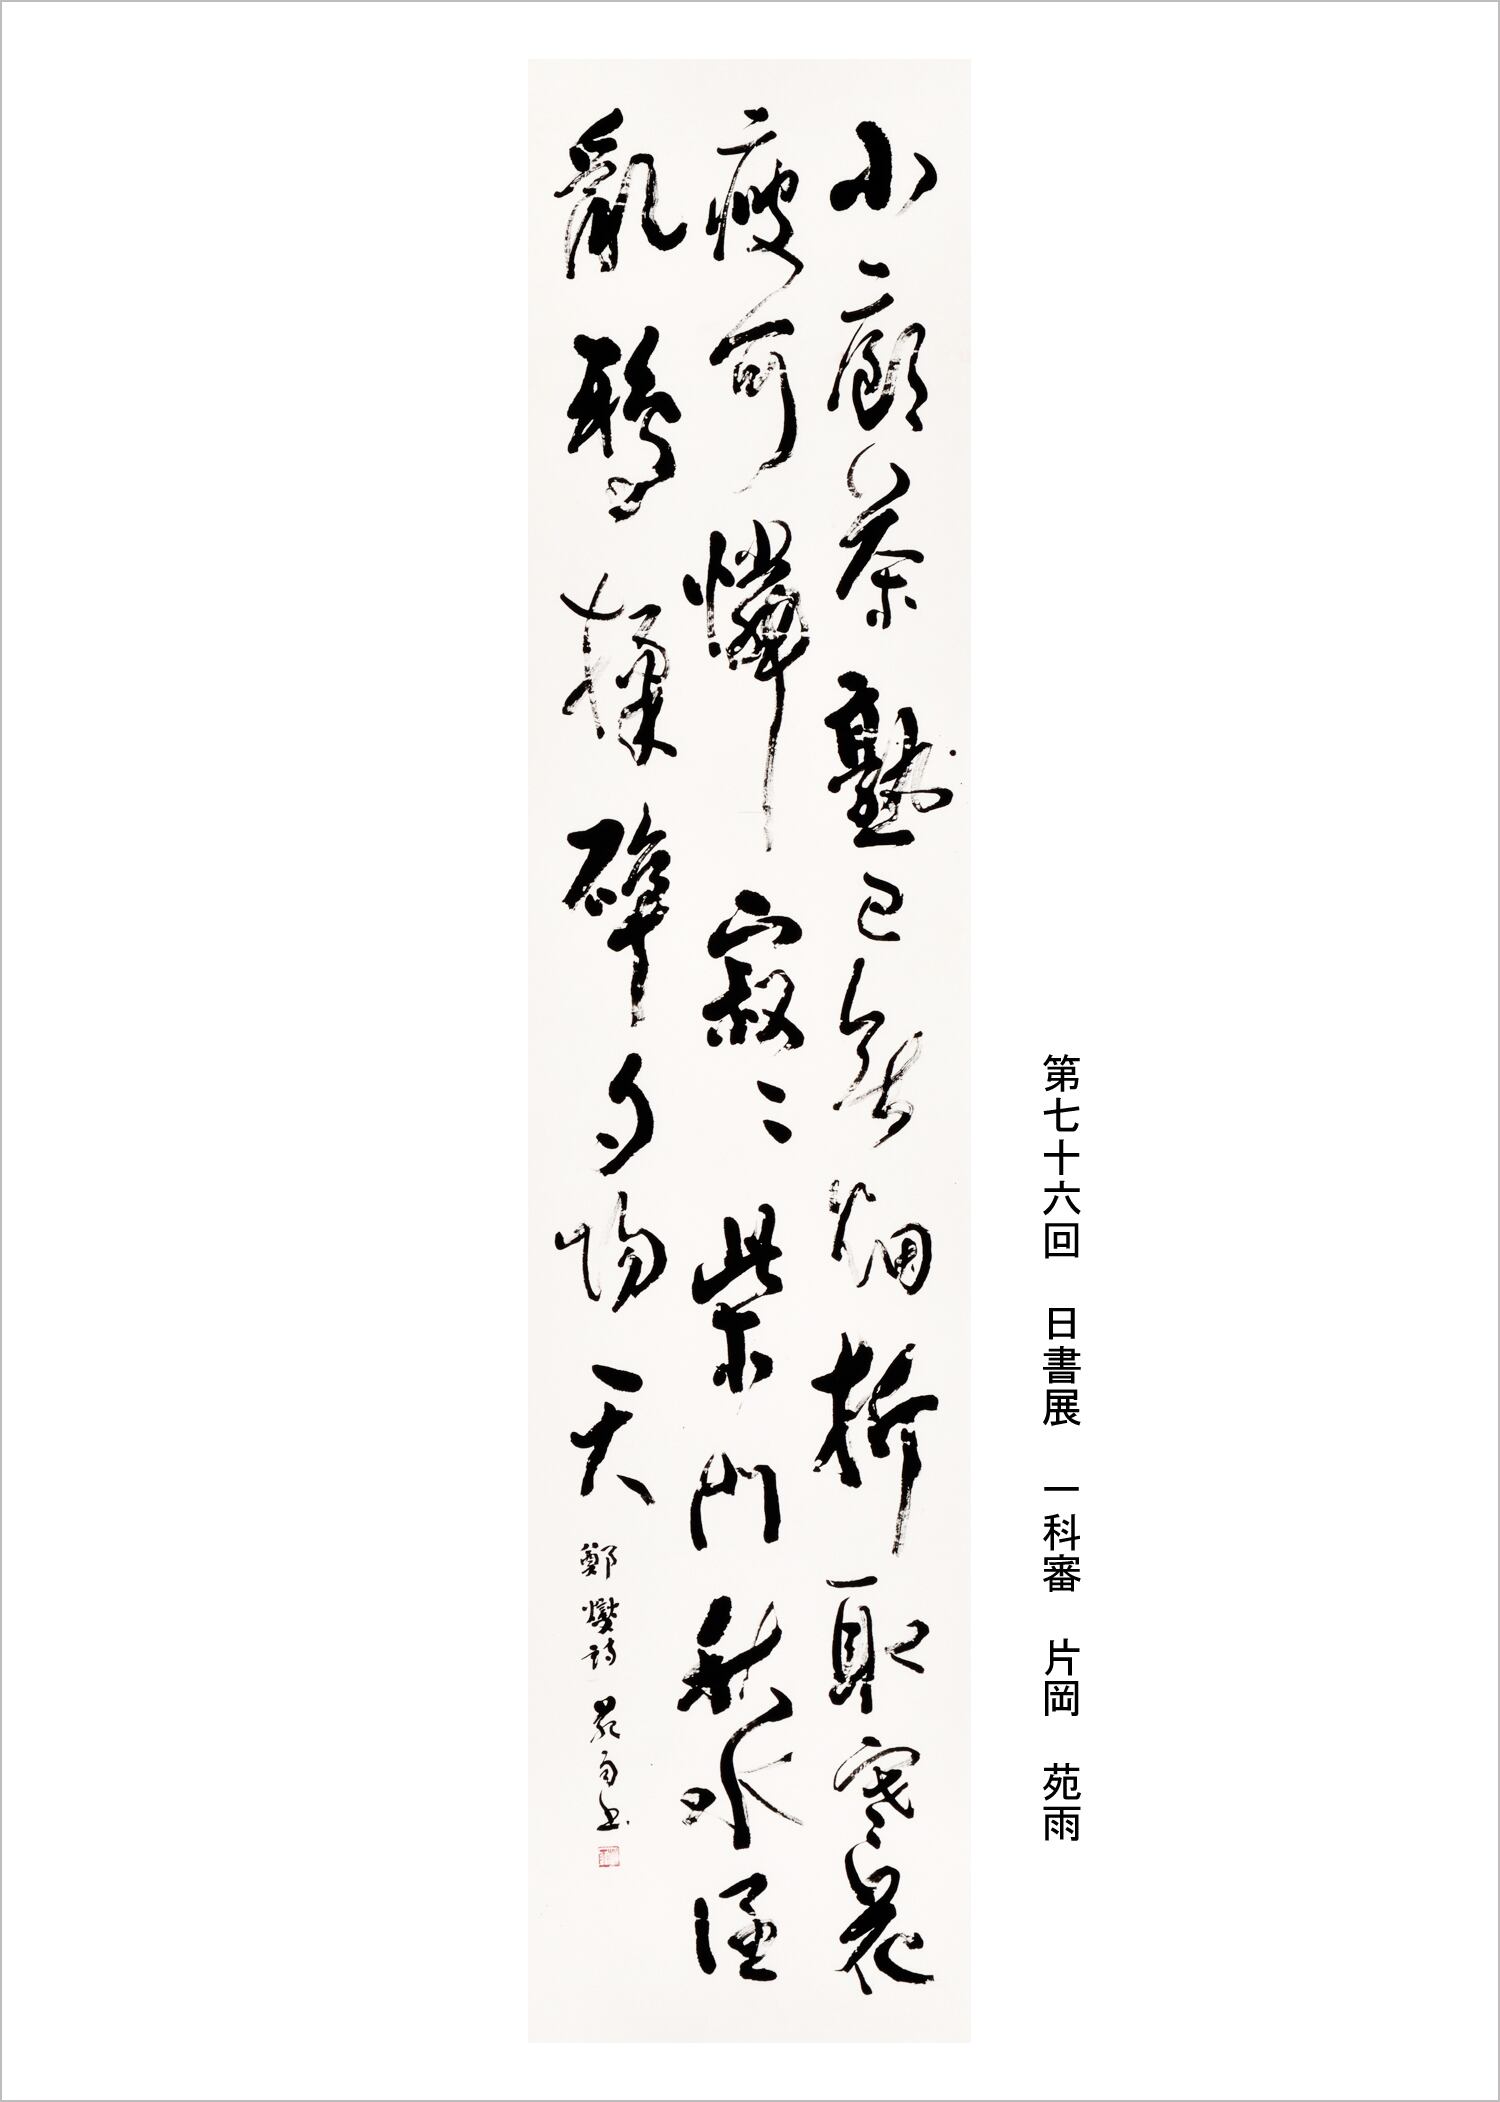 第七十六回 日書展 一科審 片岡 苑雨
小廊茶熟已無烟折取寒花
瘦可憐寂々柴門秋水
亂鴉揉碎夕陽天
鄭燮詩 苑雨書